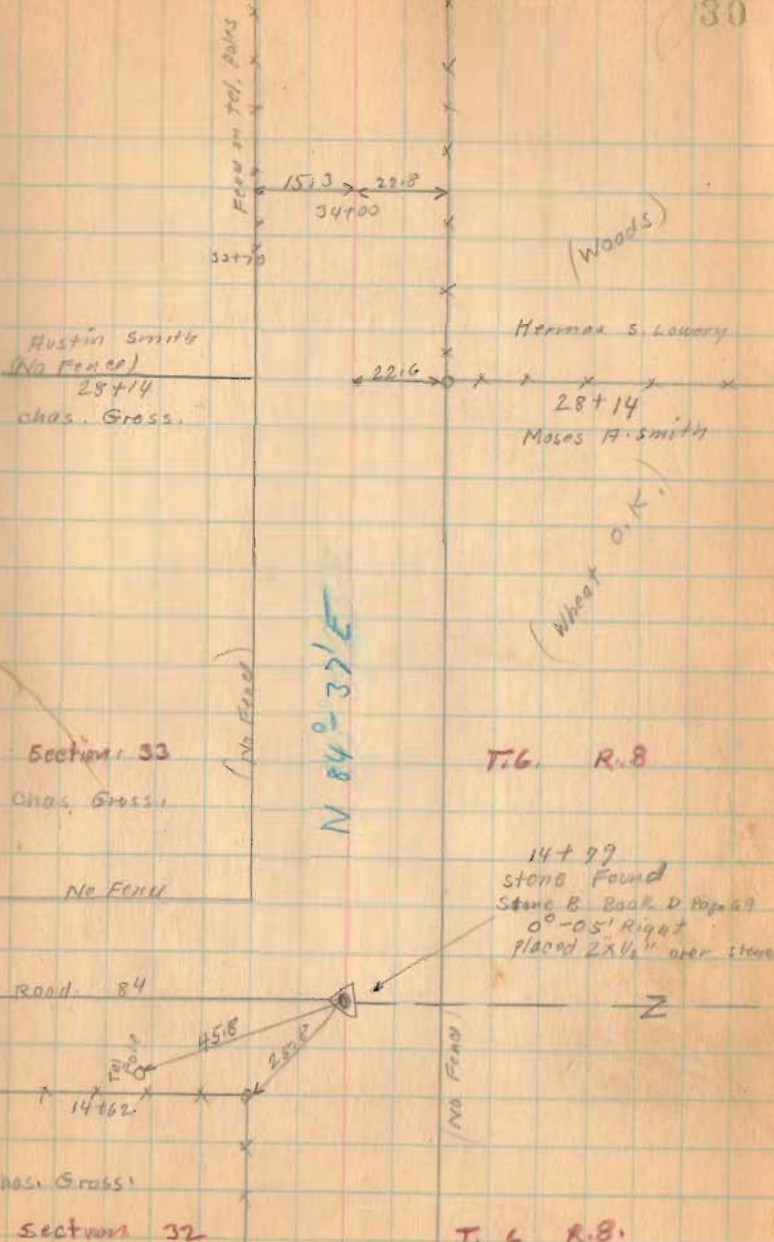 30
Fence on Tel. Poles
15.3 22.8
34+00
33+70
(Woods)
Austin Smith
(No Fence)
28+14
Chas. Gross.
Herman S. Lowery
22.6
28+14
Moses A. Smith
(Wheat O.K.)
(No Fence)
N 84°-37' E
Section 33
T.6. R.8
Chas. Gross.
14+77
Stone Found
Stone B Book D Page 59
0°-05' Right
Placed 2"x 1/2" over stone
No Fence
Road 84
N
45.8
Tel Pole
(No Fence)
14+62
has. Gross.
Section 32
T. 6 R.8.